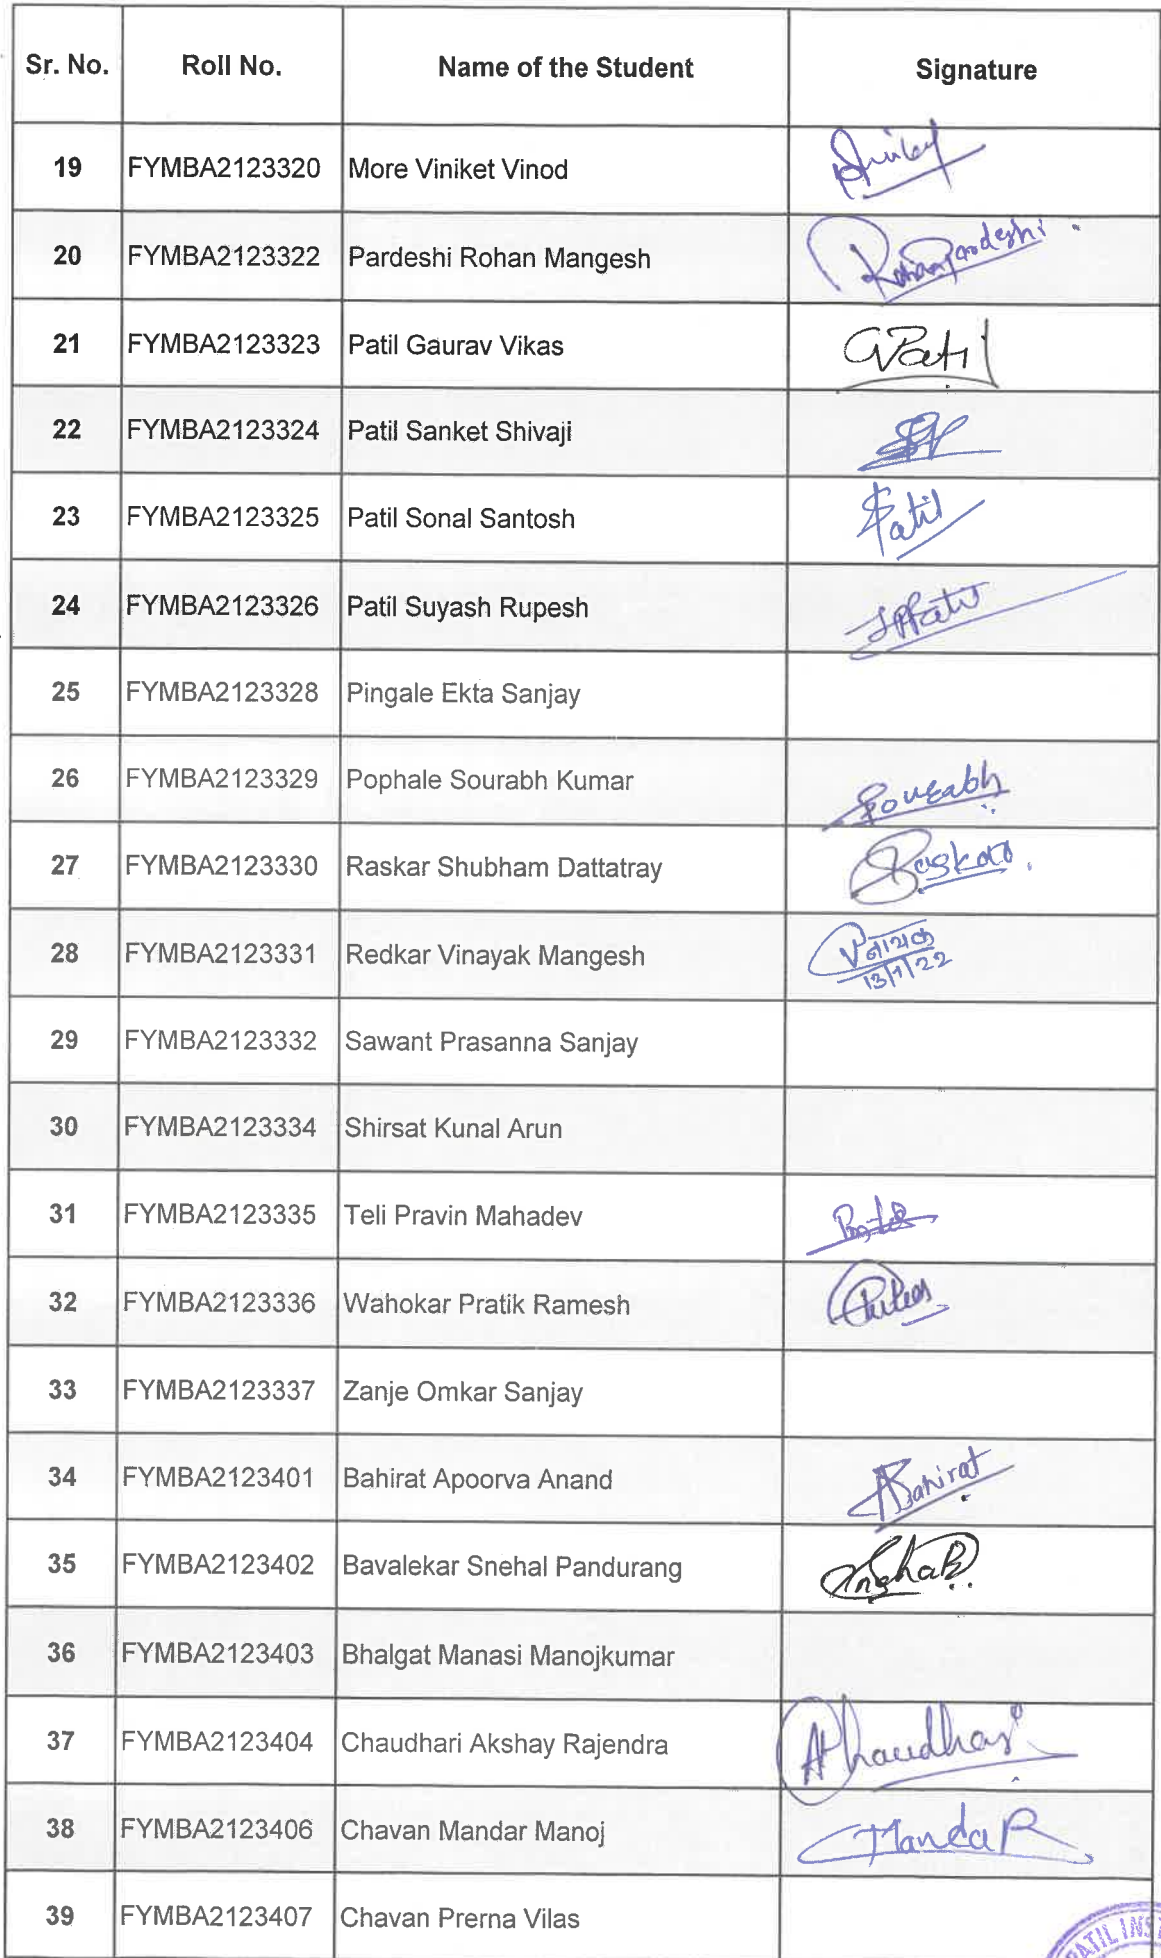 Sr. No. Roll No. Name of the Student Signature
19 FYMBA2123320 More Viniket Vinod
20 FYMBA2123322 Pardeshi Rohan Mangesh Rohan Pardeshi
21 FYMBA2123323 Patil Gaurav Vikas GPatil
22 FYMBA2123324 Patil Sanket Shivaji
23 FYMBA2123325 Patil Sonal Santosh SPatil
24 FYMBA2123326 Patil Suyash Rupesh
25 FYMBA2123328 Pingale Ekta Sanjay
26 FYMBA2123329 Pophale Sourabh Kumar Sourabh
27 FYMBA2123330 Raskar Shubham Dattatray Raskar
28 FYMBA2123331 Redkar Vinayak Mangesh
13/1/22
29 FYMBA2123332 Sawant Prasanna Sanjay
30 FYMBA2123334 Shirsat Kunal Arun
31 FYMBA2123335 Teli Pravin Mahadev
32 FYMBA2123336 Wahokar Pratik Ramesh
33 FYMBA2123337 Zanje Omkar Sanjay
34 FYMBA2123401 Bahirat Apoorva Anand ABahirat
35 FYMBA2123402 Bavalekar Snehal Pandurang
36 FYMBA2123403 Bhalgat Manasi Manojkumar
37 FYMBA2123404 Chaudhari Akshay Rajendra AChaudhari
38 FYMBA2123406 Chavan Mandar Manoj MandaR
39 FYMBA2123407 Chavan Prerna Vilas
PATIL INS